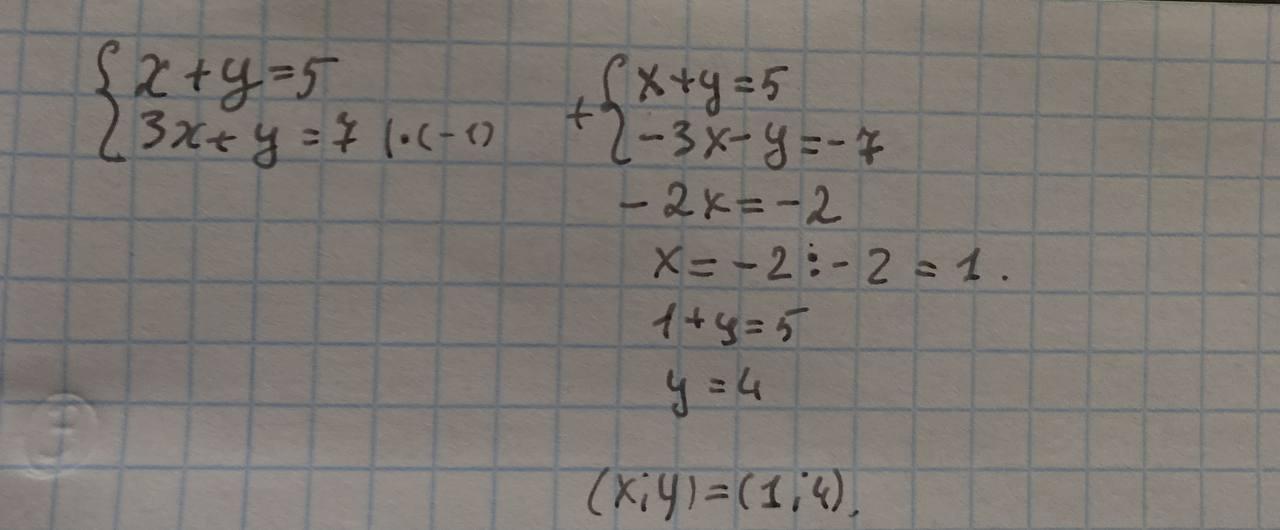 { x + y = 5
3x + y = 7 | · (-1)
+ { x + y = 5
-3x - y = -7
-2x = -2
x = -2 : -2 = 1.
1 + y = 5
y = 4
(x; y) = (1; 4).